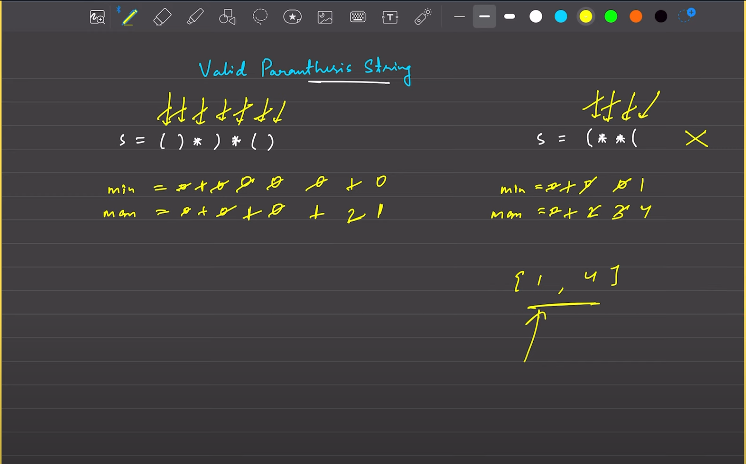 Valid Paranthesis String
s = ( ) * ) * ( )
s = ( * * (
min = 0 1 0 0 0 0 1 0
max = 0 1 0 1 0 1 2 1
min = 0 1 0 0 1
max = 0 1 2 3 4
[ 1 , 4 ]